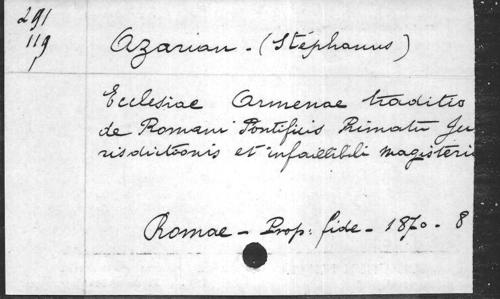 291
119
1
Azarian - (Stéphanus)
Ecclesiae Armenae traditio
de Romani Pontificis Primatu Ju
risdictionis et infallibili magisteri
Romae - Prop: fide - 1870 - 8